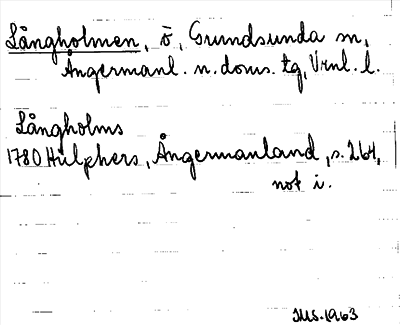 Långholmen, ö, Grundsunda sn,
Ångermanl. n. doms. tg, Vrnl. l.
Långholms
1780 Hülphers, Ångermanland, s. 264,
not i.
IMS. 1963